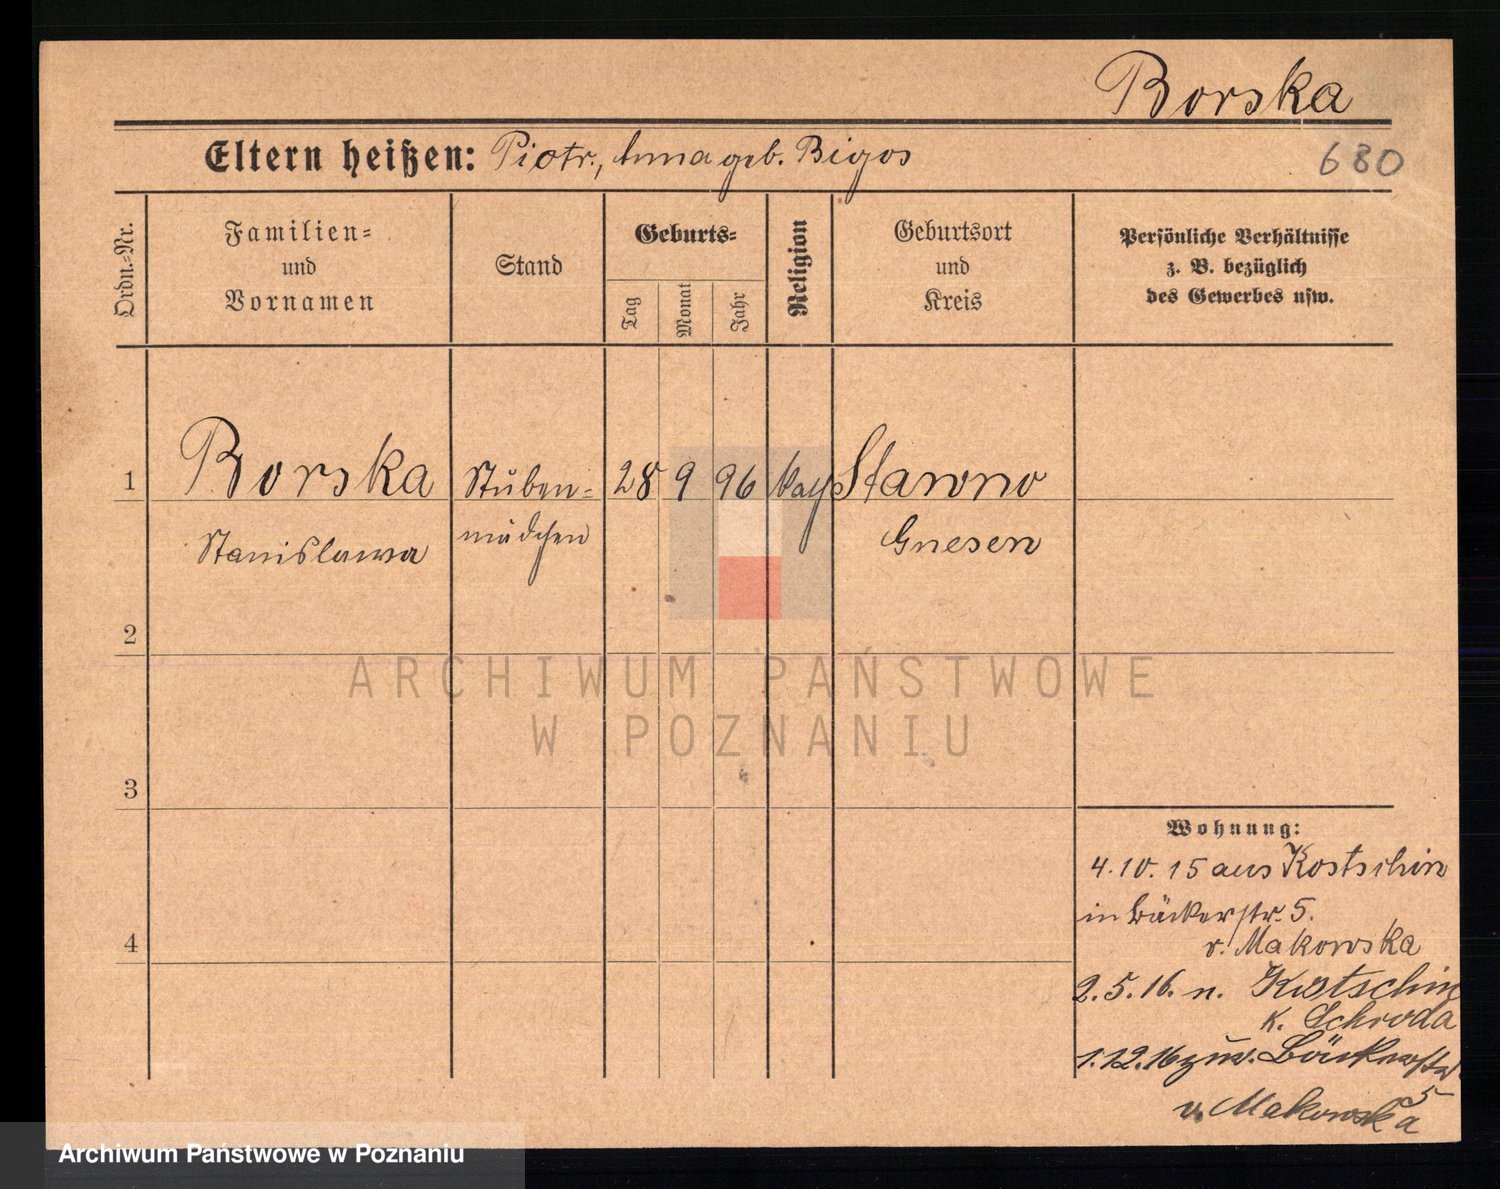 Borska
Eltern heißen: Piotr., Anna geb. Bigos
680
Ordn.-Nr.
Familien-
und
Vornamen
Stand
Geburts-
Tag
Monat
Jahr
Religion
Geburtsort
und
Kreis
Persönliche Verhältnisse
z. B. bezüglich
des Gewerbes usw.
1
Borska
Stuben-
28
9
96
Stawno
Stanislawa
mädchen
Gnesen
2
3
4
ARCHIWUM PAŃSTWOWE
W POZNANIU
Wohnung:
4.10.15 aus Kostschin
in Bäckerstr. 5.
v. Makowska
2.5.16. n. Kostschin
K. Schroda
1.12.16 zur. Bäckerstr.
5
v. Makowska
Archiwum Państwowe w Poznaniu